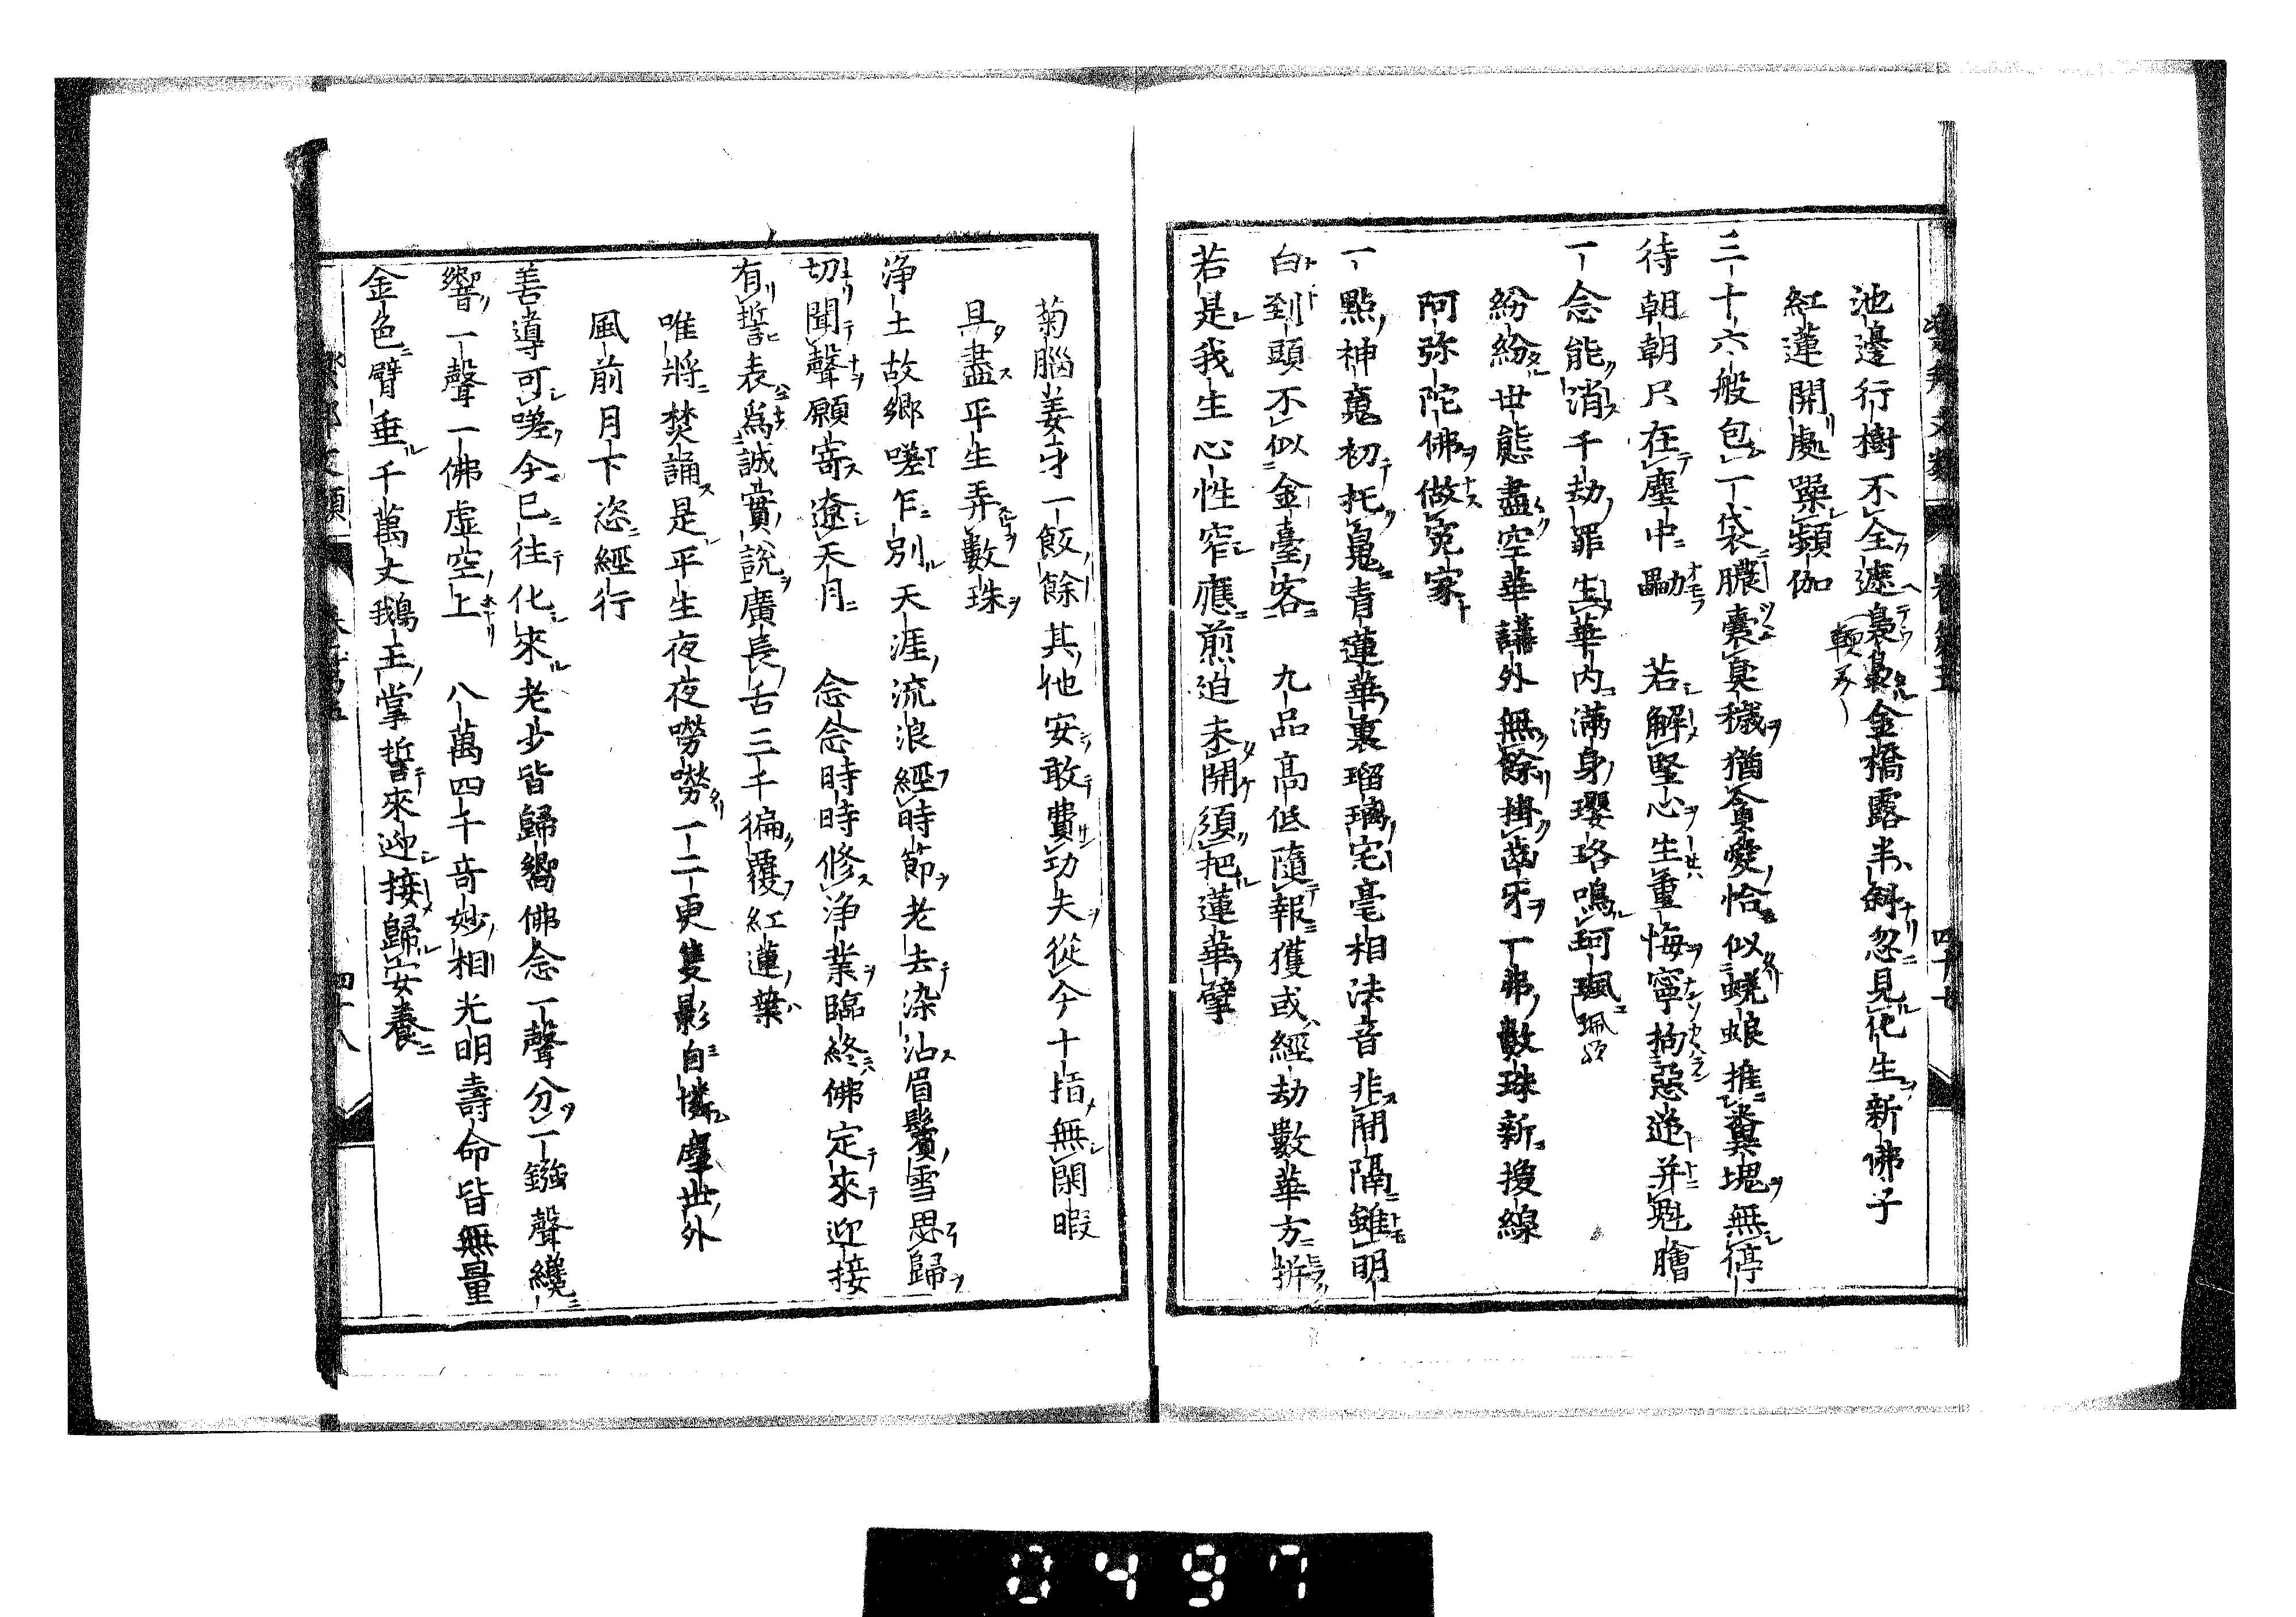 池邊行樹不全遮裊裊金橋露半斜忽見化生新佛子
紅蓮開處躁頻伽
三十六般包一袋膿囊臭穢猶貪愛恰似蜣蜋推糞塊無停
待朝朝只在塵中勵　若解堅心生重悔寧拘惡逆并魁膾
一念能消千劫罪生華内滿身瓔珞鳴珂珮
紛紛世態盡空華講外無餘掛齒牙一串數珠新換線
阿弥陀佛做寃家
一點神魂初托魄青蓮華裏瑠璃宅毫相法音非間隔雖明
白到頭不似金臺客　九品高低隨報獲或經劫數華方拆
若是我生心性窄應煎迫未開須把蓮華擘
菊腦姜芽一飯餘其他安敢費功夫從今十指無閑暇
具盡平生弄數珠
浄土故郷嗟乍別天涯流浪經時節老去染沾眉鬢雪思歸
切聞聲願寄遼天月　念念時時修浄業臨終佛定來迎接
有誓表爲誠實說廣長舌三千徧覆紅蓮葉
唯將焚誦是平生夜夜嘮嘮一二更隻影自憐塵世外
風前月下恣經行
善導可嗟今已往化來老少皆歸嚮佛念一聲分一鏹聲纔
響一聲一佛虚空上　八萬四千竒妙相光明壽命皆無量
金色臂垂千萬丈鵝王掌誓來迎接歸安養
四十八
0497